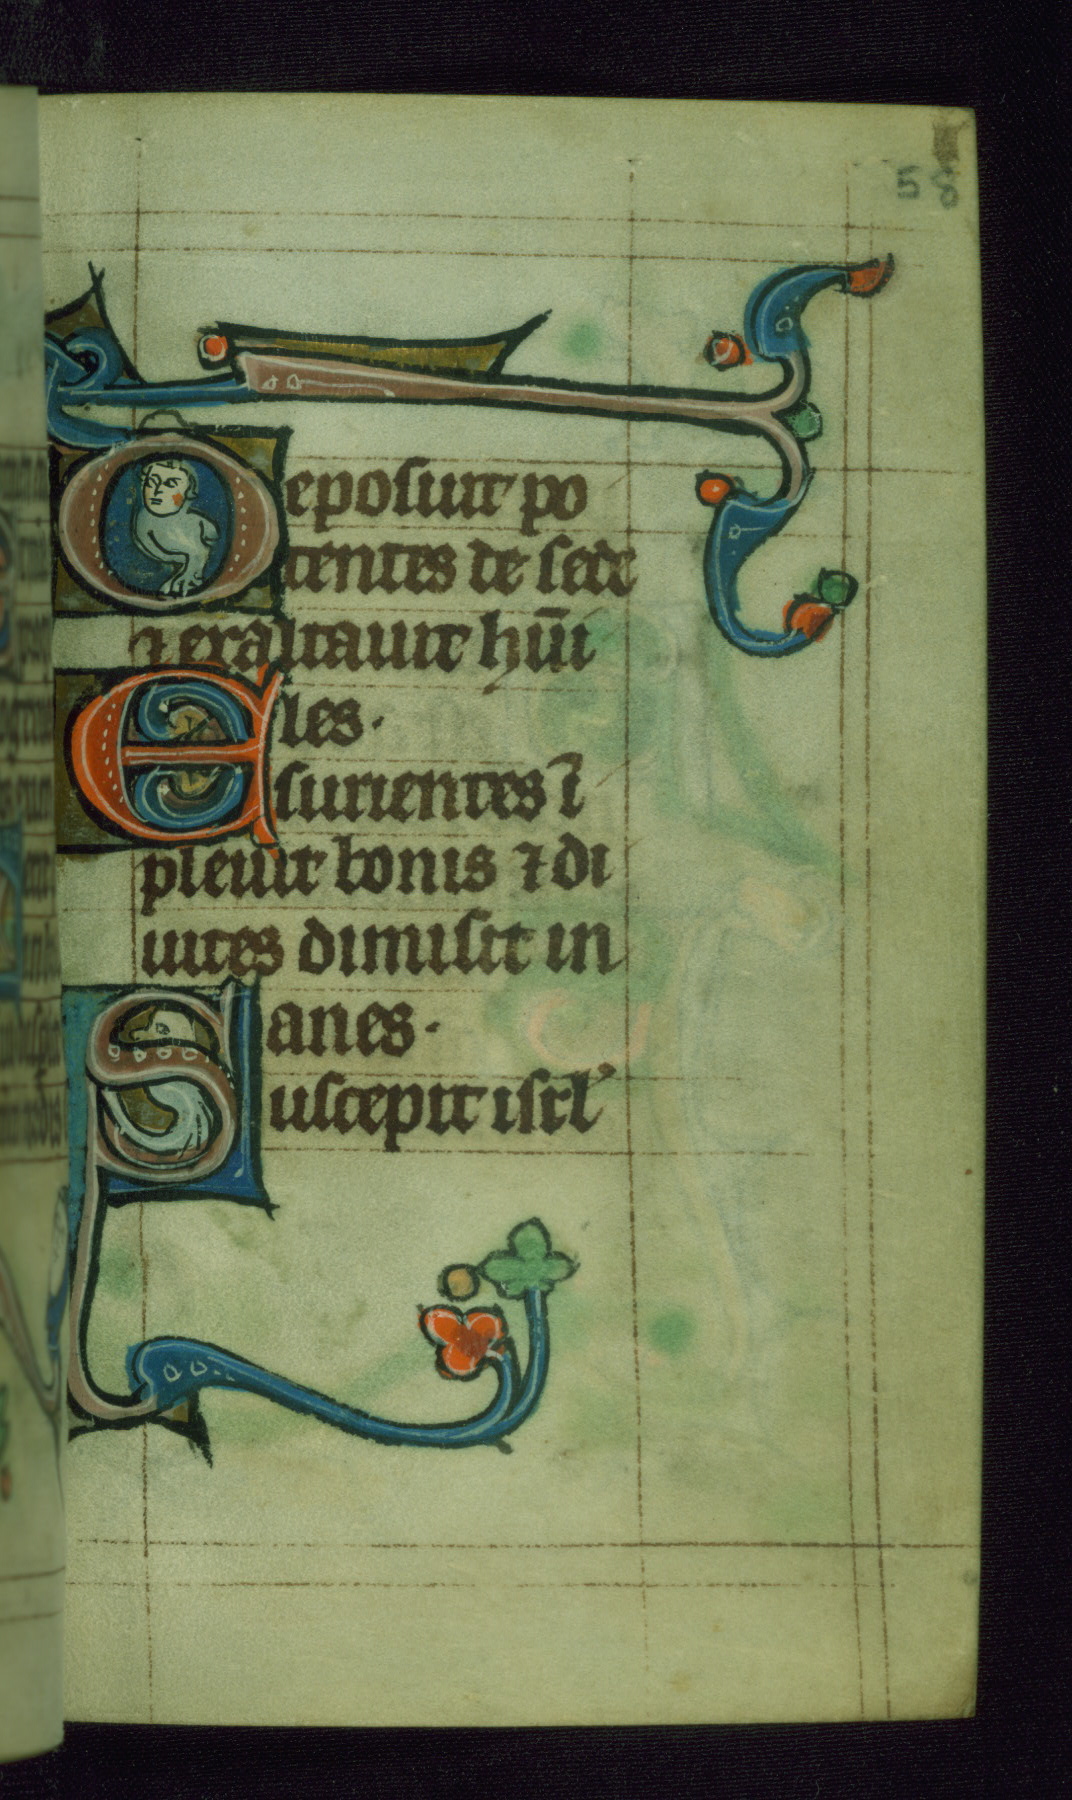 58
Deposuit po
tentes de sede
⁊ exaltauit hūi
les.
Esurientes ī
pleuit bonis ⁊ di
uites dimisit in
anes.
Suscepit isrl'